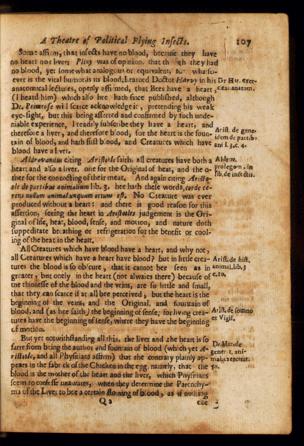 A Theatre of Political Flying Insects. 107
Some affirm, that insects have no blood, because they have
no heart nor liver; Pliny was of opinion, that though they had
no blood, yet somewhat analogous or equivalent, but whatso-
ever is the vital humor its blood, learned Doctor Harvy in his
anatomical lectures, openly affirmed, that Bees have a heart,
(I heard him) which also hee hath since published, although
Dr. Primrose will scarce acknowledge it, pretending his weak
eye-sight, but this being asserted and confirmed by such unde-
niable experience, I ready subscribe they have a heart, and
therefore a liver, and therefore blood, for the heart is the foun-
tain of blood, and hath first blood, and Creatures which have
blood have a liver.
Aldrovandus citing Aristotle saith, all creatures have both a
heart and also a liver, one for the Original of heat, and the o-
ther for the concocting of their meat. And again citing Aristo-
tle de partibus animalium lib. 3. hee hath these words, corde ca-
rens nullum animal unquam ortum est. No Creature was ever
produced without a heart: and there is good reason for this
assertion, seeing the heart in Aristotles judgement is the Ori-
ginal of life, hear, blood, sense, and motion, and nature doth
suppeditate breathing or refrigeration for the benefit or cool-
ing of the heat in the heart.
All Creatures which have blood have a heart, and why not,
all Creatures which have a heart have blood? but in little crea-
tures the blood is so obscure, that it cannot bee seen as in
greater, but onely in the heart (not alwaies there) because of
the thinness of the blood and the veins, are so little and small,
that they can scarce if at all bee perceived, but the heart is the
beginning of the veins, and the Original and fountain of
blood, and (as hee saith) the beginning of sense, for living crea-
tures have the beginning of sense, where they have the beginning
of motion.
But yet notwithstanding all this, the liver and the heart is so
farre from being the author and fountain of blood (which yet A-
ristotle, and all Physitians affirm) that the contrary plainly ap-
pears in the fabrick of the Chicken in the egg, namely, that the
blood is the mother of the heart and the liver, which Physitians
seem to confesse unawares, when they determine the Parenchy-
ma of the Liver to bee a certain flowing of blood, as if nothing
Q 2
Dr Har. exer-
citat. anatom.
Arist. de gene-
Aldrov.
prolegom. in
lib. de insectis.
Arist. de hist.
animal. lib. 3
Arist. de somno
et Vigil.